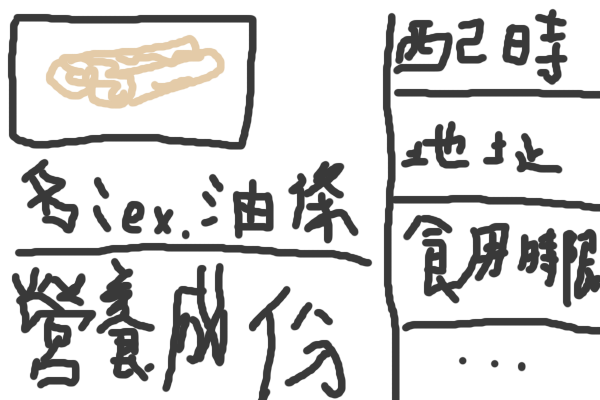 名:ex.油條
營養成份
配時
地址
食用時限
...